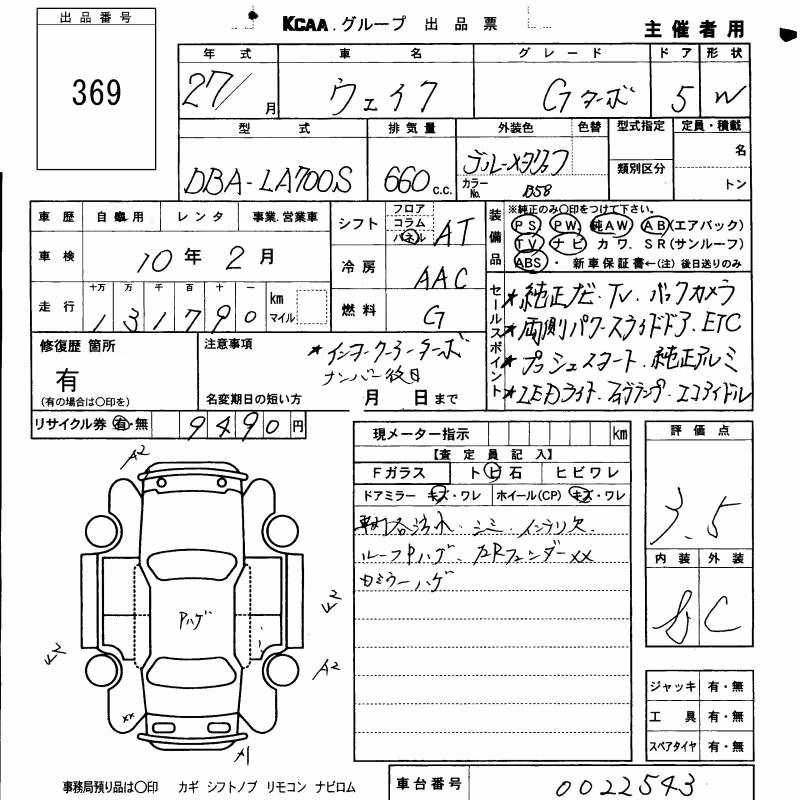 出品番号
369
KCAA.グループ 出品票
主催者用
年式 車名 グレード ドア 形状
27/ 月 ウェイク Gターボ 5 W
型式 排気量 外装色 色替 型式指定 定員・積載
DBA-LA700S 660 c.c. カラーNo. B58 類別区分 名
トン
車歴 自家用 レンタ 事業.営業車
車検 10年2月
走行 十万 万 千 百 十 一 km マイル
131790
シフト フロア コラム パネル AT
冷房 AAC
燃料 G
装備品 ※純正のみ〇印をつけて下さい。
PS. PW. 純AW. AB(エアバック)
TV ナビ カワ. SR(サンルーフ)
ABS ・ 新車保証書←(注)後日送りのみ
セールスポイント
*純正ナビ.TV.バックカメラ
*両側パワースライドドア.ETC
*プッシュスタート.純正アルミ
*LEDライト.フォグランプ.エコアイドル
修復歴 箇所
有
(有の場合は〇印を)
注意事項 *インタークーラーターボ
ナンバー後日
名変期日の短い方 月 日まで
リサイクル券 有・無 9490円
現メーター指示 km
【査定員記入】
Fガラス トビ石 ヒビワレ
ドアミラー キズ・ワレ ホイール(CP) キズ・ワレ
車内各汚れ.シミ.インテリ欠
ルーフPハゲ.左RフェンダーXX
ミラーハゲ
評価点
3.5
内装 外装
C
A2
Pハゲ
A2
XX
ジャッキ 有・無
工具 有・無
スペアタイヤ 有・無
事務局預り品は〇印 カギ シフトノブ リモコン ナビロム
車台番号 0022543